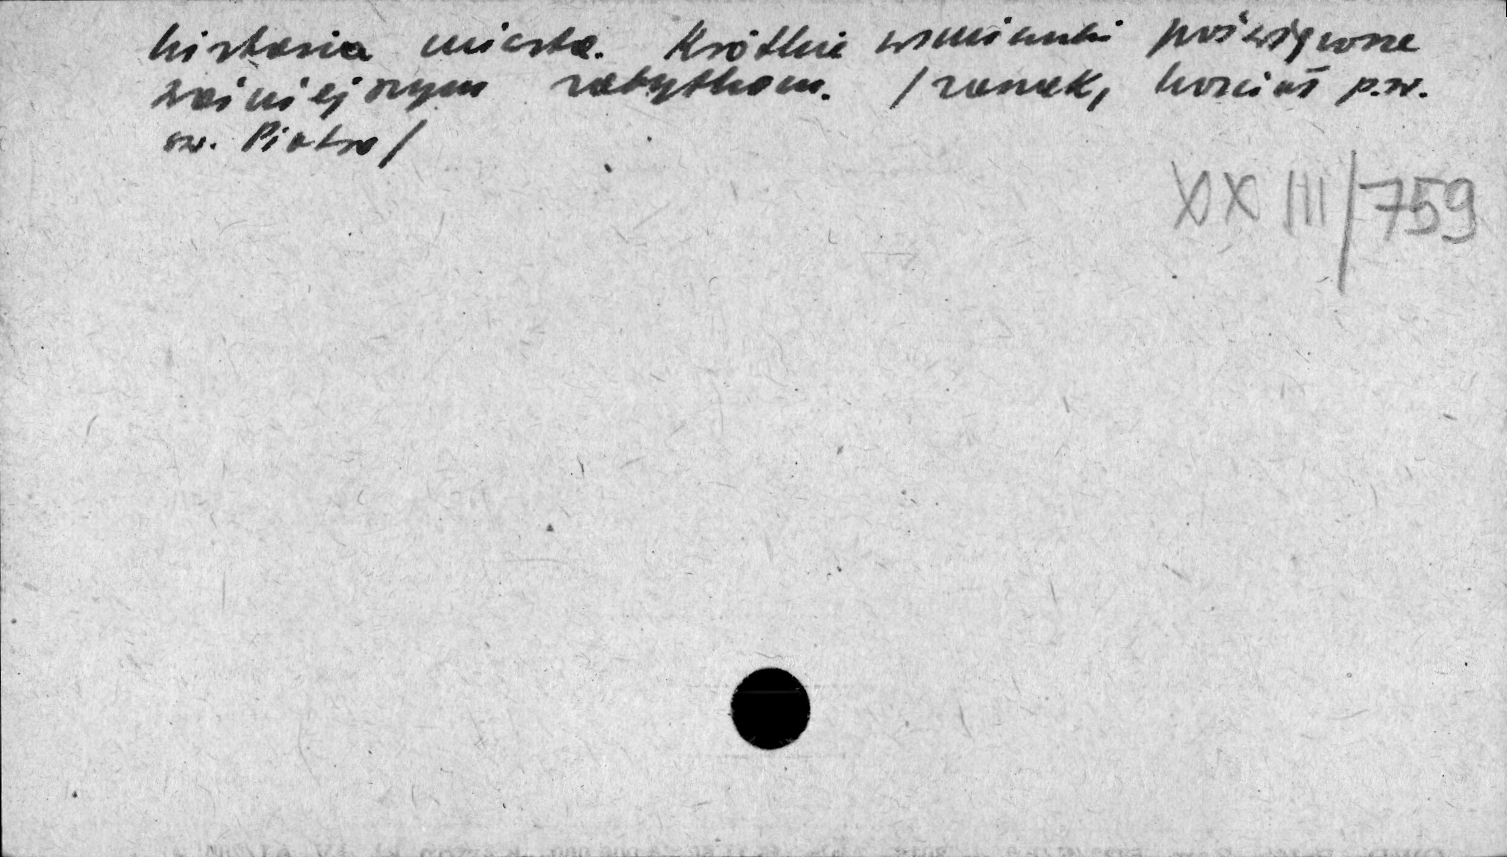 historia miasta. Krótkie wzmianki poświęcone
ważniejszym zabytkom. /zamek, kościół p.w.
św. Piotra/
XXIII/759